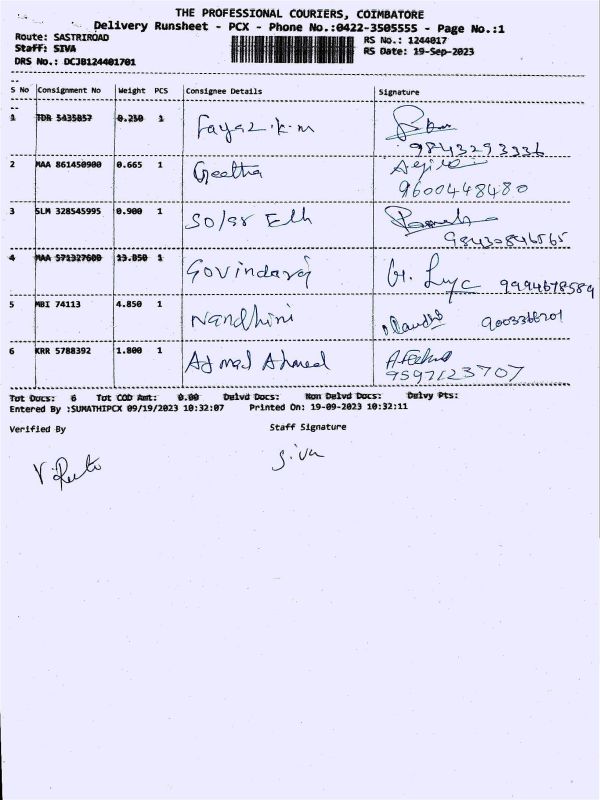 THE PROFESSIONAL COURIERS, COIMBATORE
Delivery Runsheet - PCX - Phone No.:0422-3505555 - Page No.:1
Route: SASTRIROAD RS No.: 1244017
Staff: SIVA RS Date: 19-Sep-2023
DRS No.: DCJB124401701
S No Consignment No Weight PCS Consignee Details Signature
1 TDR 5435857 0.250 1 Fayaz.k.m
9843293336
2 MAA 861450900 0.665 1 Geetha
9600448480
3 SLM 328545995 0.900 1 Solar Elh
98430846565
4 MAA 571327600 13.850 1 Govindaraj G. 9994678584
5 MBI 74113 4.850 1 Nandhini Nandhi
6 KRR 5788392 1.800 1 Ahmed
9597123707
Tot Docs: 6 Tot COD Amt: 0.00 Delvd Docs: Non Delvd Docs: Delvy Pts:
Entered By :SUMATHIPCX 09/19/2023 10:32:07 Printed On: 19-09-2023 10:32:11
Verified By Staff Signature
Siva